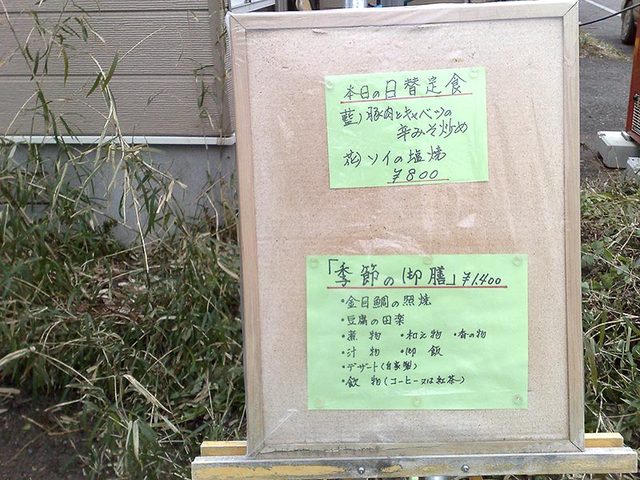 本日の日替定食
藍)豚肉とキャベツの
辛みそ炒め
花)ソイの塩焼
¥800
「季節の御膳」¥1,400
・金目鯛の照焼
・豆腐の田楽
・煮物 ・和え物 ・香の物
・汁物 ・御飯
・デザート(自家製)
・飲物(コーヒー又は紅茶)